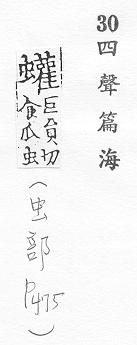 30四聲篇海
蠸
巨貟切
食瓜虫
(虫部 P475)